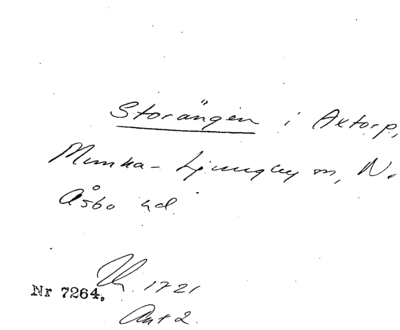 Storängen i Axtorp,
Munka-Ljungby sn, N.
Åsbo hd.
1721
Nr 7264.
Akt 2.